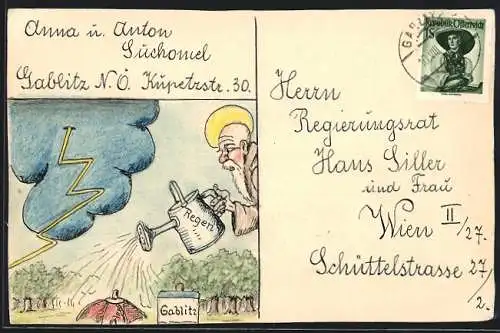 Anna u. Anton
Suchomel
Gablitz N.Ö. Kupetzstr. 30.
Regen
Gablitz
Republik Österreich
1S
Herrn
Regierungsrat
Hans Siller
und Frau
Wien II
/27.
Schüttelstrasse 27/
2.